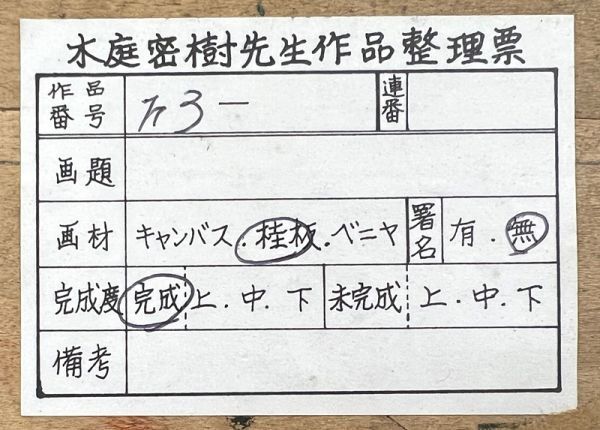 木庭密樹先生作品整理票
作品番号 連番
画題
画材 キャンバス.桂板.ベニヤ 署名 有.無
完成度 完成 上.中.下 未完成 上.中.下
備考